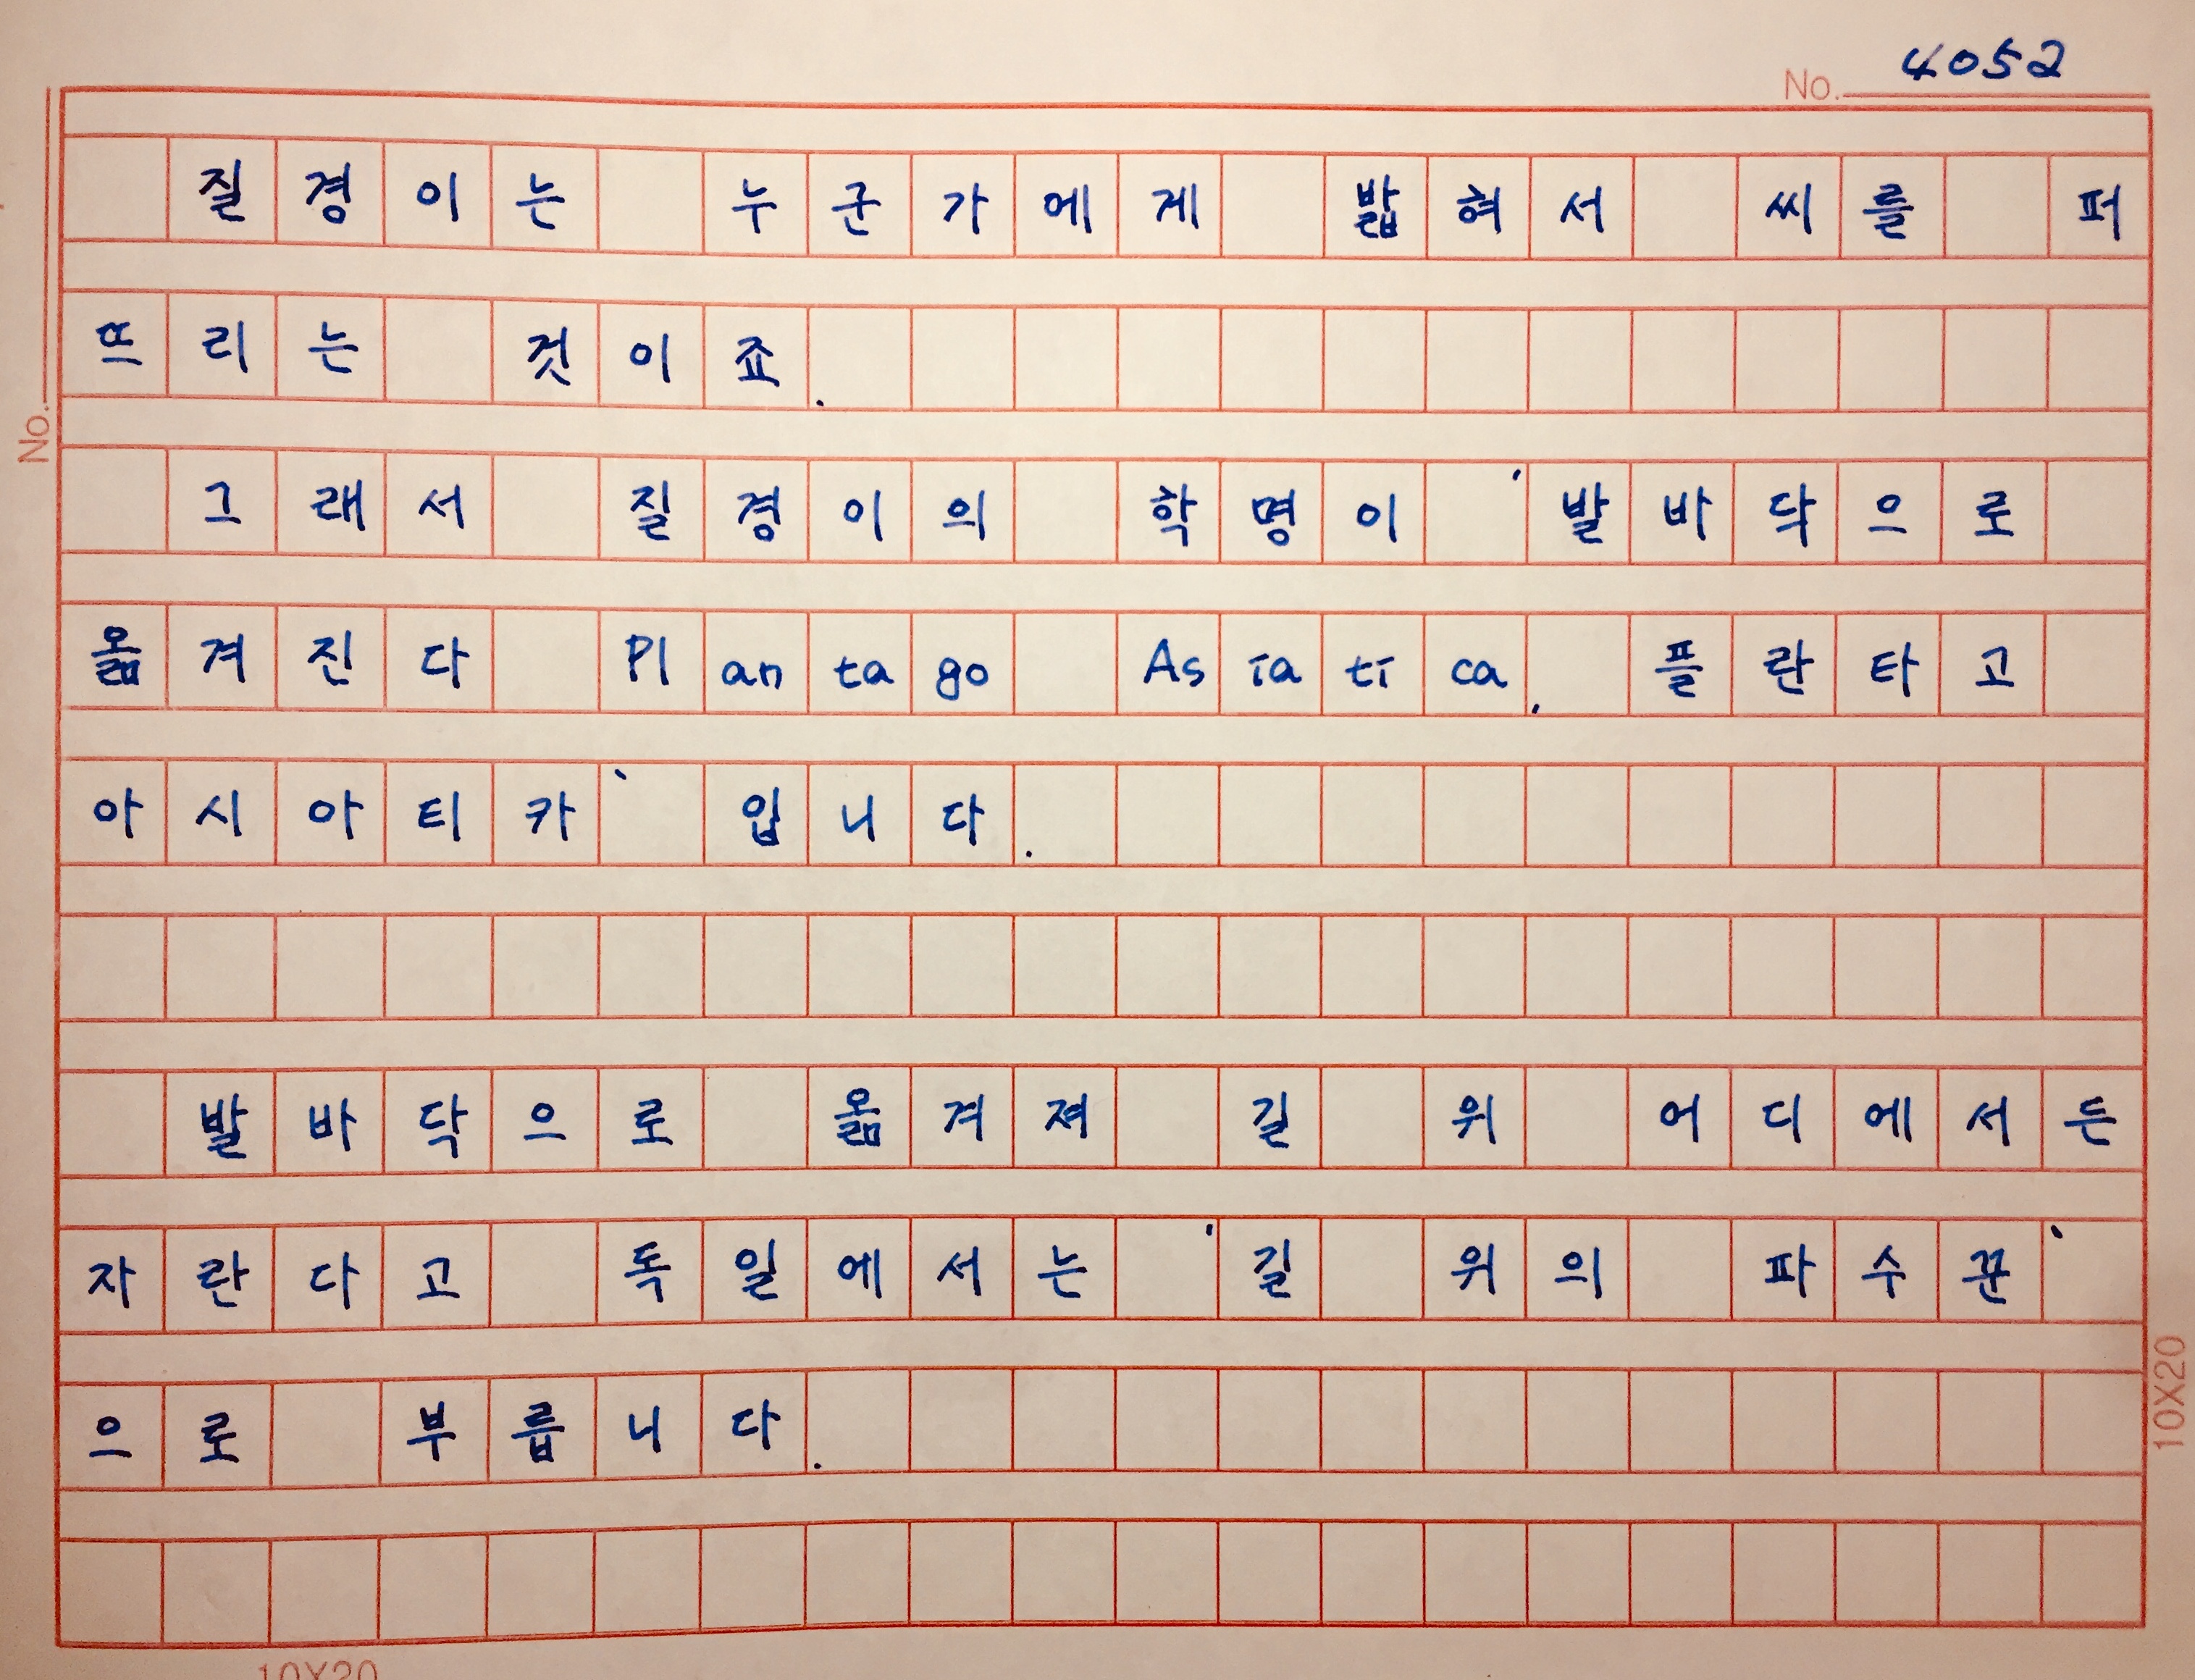 No. 4052
질경이는 누군가에게 밟혀서 씨를 퍼
뜨리는 것이죠.
No.
그래서 질경이의 학명이 '발바닥으로
옮겨진다 Plantago Asiatica. 플란타고
아시아티카' 입니다.
발바닥으로 옮겨져 길 위 어디에서든
자란다고 독일에서는 '길 위의 파수꾼'
으로 부릅니다.
10X20
10X20